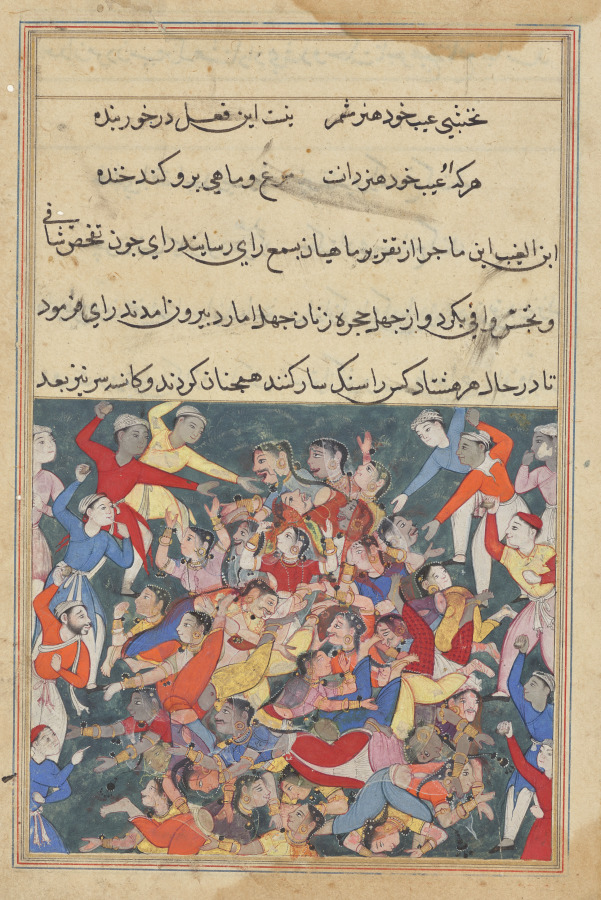 نخشبی عیب خود هنر شمر نیست این فعل در خور بنده
هرکه او عیب خود هنر دانست مرغ و ماهی برو کند خنده
ابن الغیب این ماجرا از تقریر ماهیان بسمع رای رسانید رای چون تفحص شافی
و تجسس وافی بکرد و از چهل حجره زنان چهل امارد بیرون آمدند رای فرمود
تا در حال هر هشتاد کس را سنک سار کنند همچنان کردند و کانسه سر نیز بعد